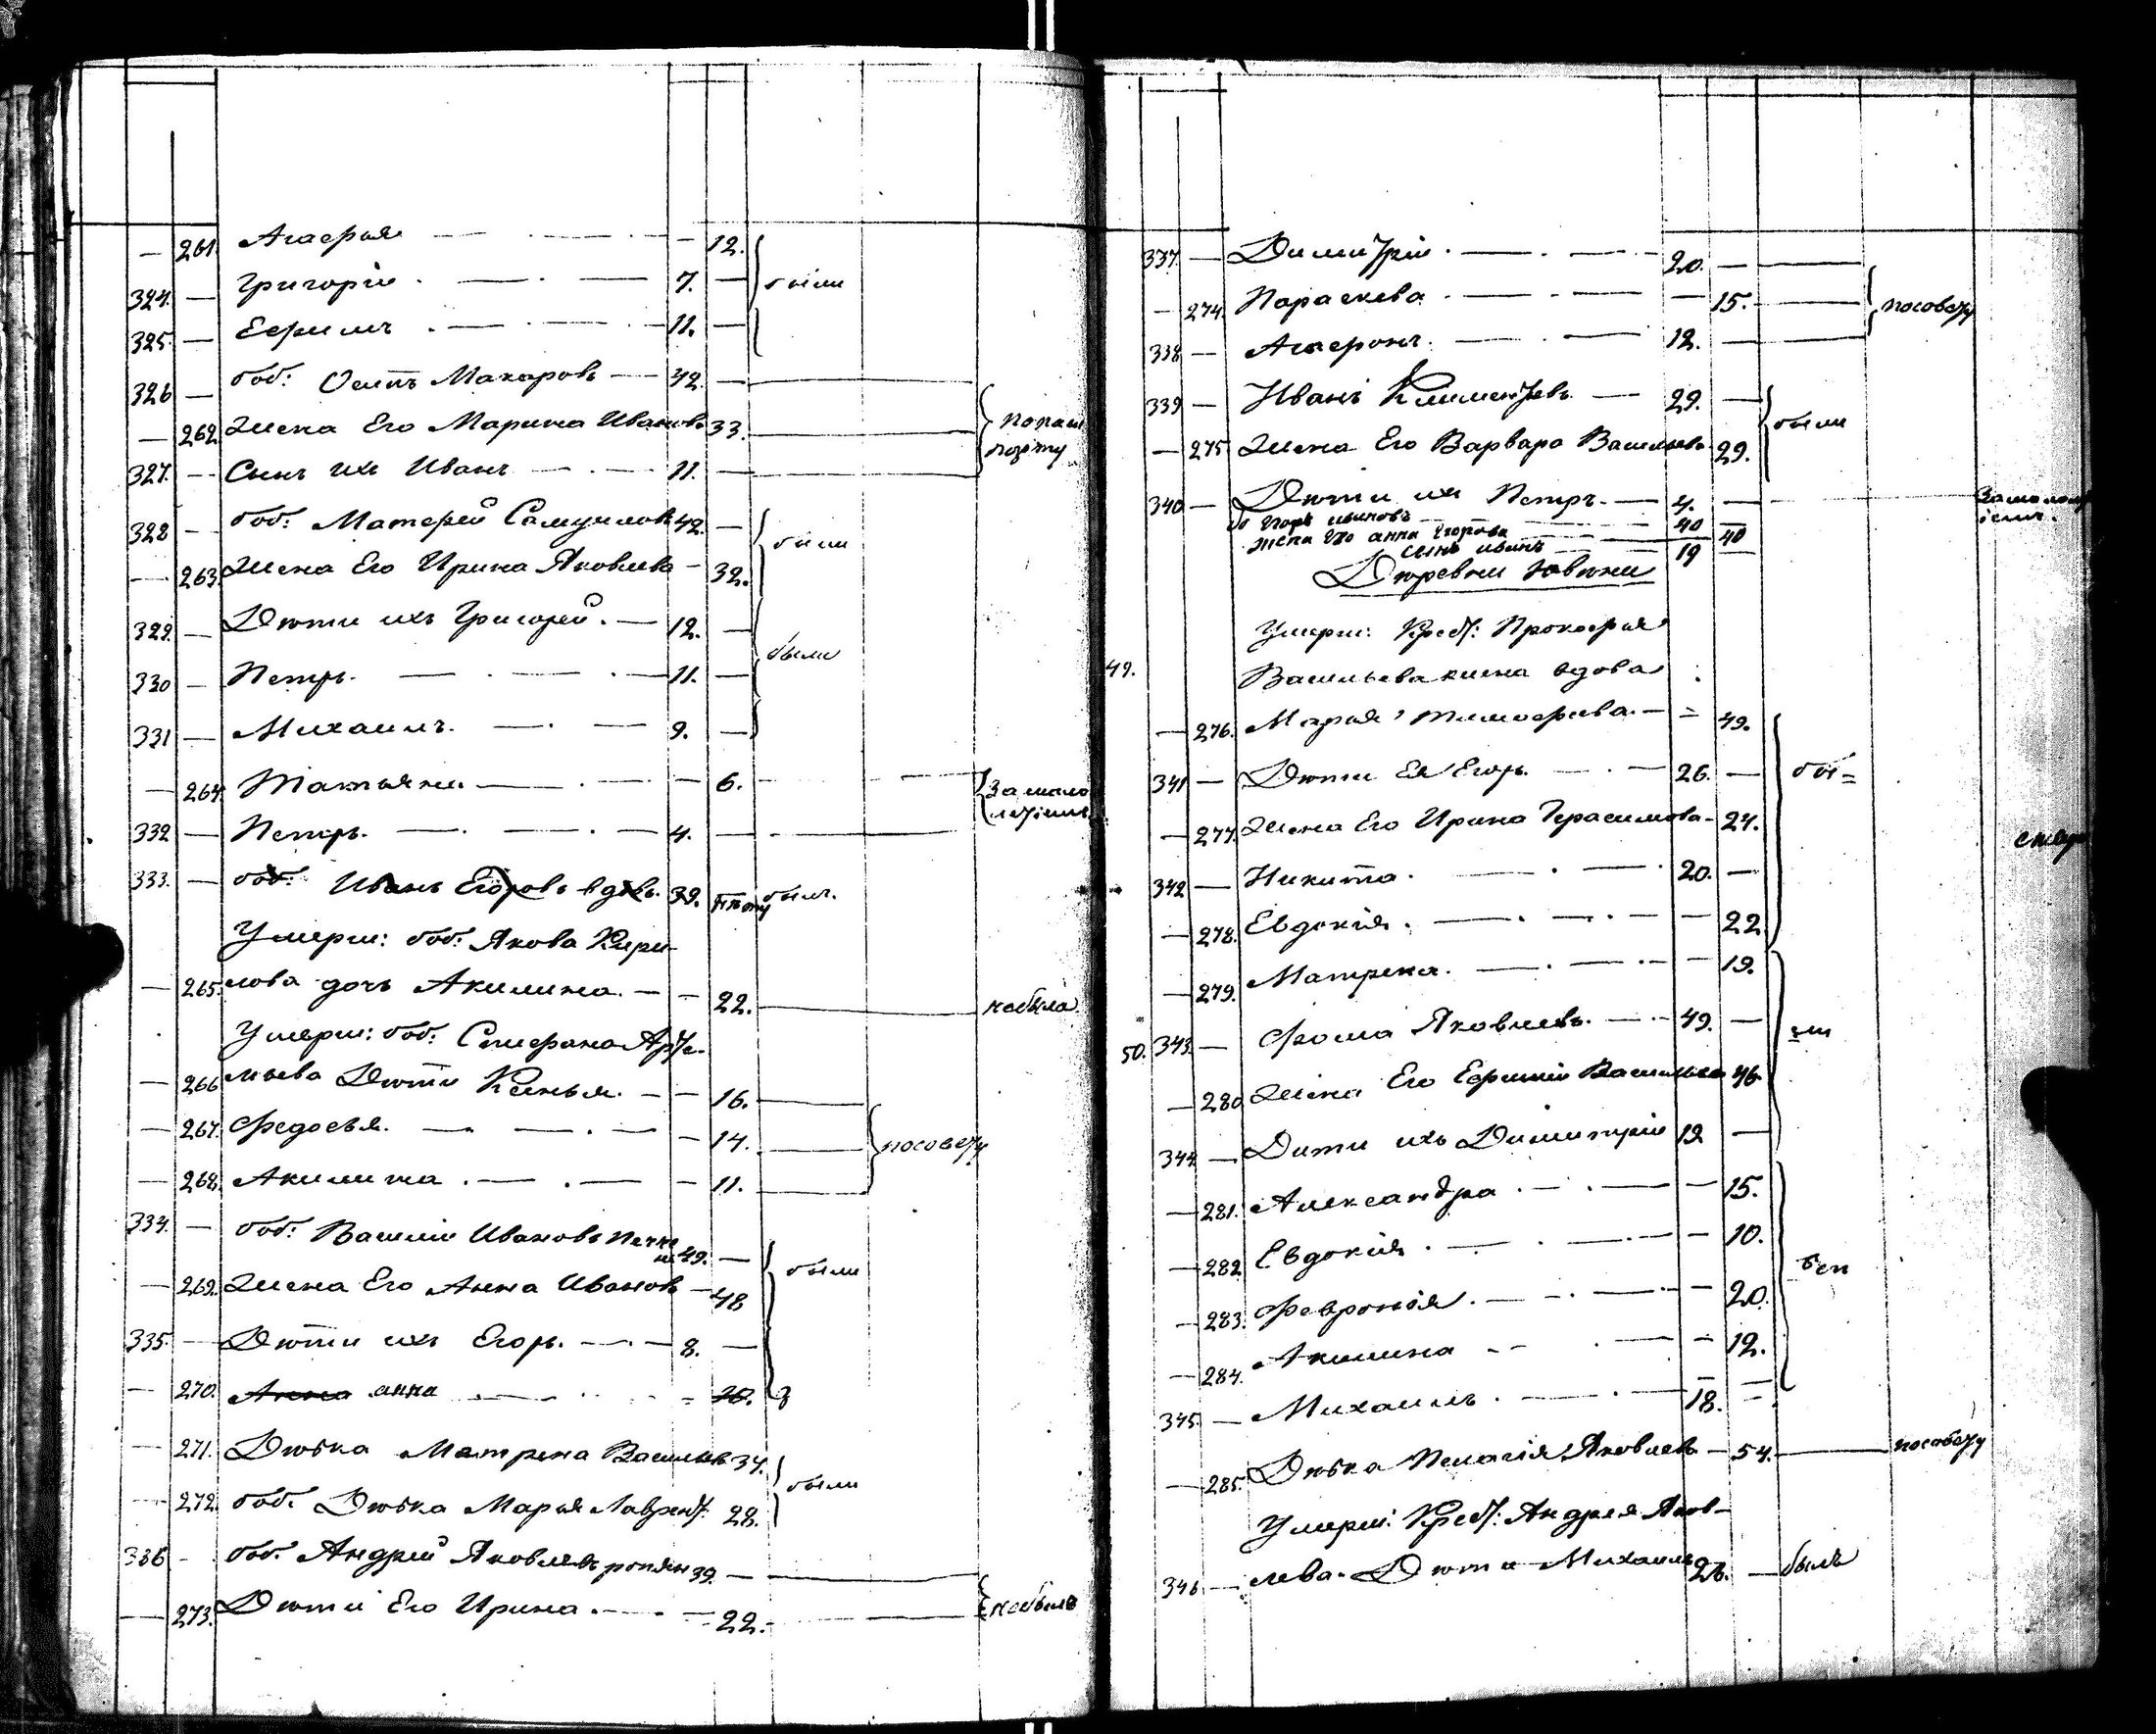 — 261. Агафья — 12.
324. — Григорiй. — 7. — были
325. — Ефимъ. — 11. —
326 — боб: Осипъ Макаровъ — 42. —
— 262. Жена Его Марина Иванова 33. по паш
327. — Сынъ ихъ Иванъ — 11. — порту
328 — боб: Матфей Самуиловъ 42. —
— 263. Жена Его Ирина Яковлева — 32. были
329. — Дѣти ихъ Григорей. — 12. —
330 — Петръ. — 11. — были
331 — Михаилъ. — 9. —
— 264. Татьяна — 6. За мало
332 — Петръ. — 4. — лѣтiемъ
333. — боб: Иванъ Егоровъ вдовъ. 39. былъ.
Умерш: боб: Якова Кири-
— 265. лова дочь Акилина. — 22. небыла
Умерш: боб: Стефана Арте-
— 266 мьева Дѣти Ксенья. — 16.
— 267. Федосья. — 14. посовѣту
— 268. Акилина. — 11.
334. — боб: Василiй Ивановъ 49. —
— 269. Жена Его Анна Иванов — 48 были
335. — Дѣти ихъ Егоръ. — 8. —
— 270. Анна анна — 10.
— 271. Дѣвка Матрена Васильев 34.
— 272. боб. Дѣвка Марья Лаврент. 28. были
336 — боб. Андрей Яковлевъ 39. —
— 273. Дѣти Его Ирина. — 22. небыли
337. — Димитрiй. — 20. —
— 274. Параскева. — 15. посовѣту
338 — Агафонъ. — 12. —
339 — Иванъ Климентьевъ. — 29. —
— 275 Жена Его Варвара Васильева 29. были
340 — Дѣти ихъ Петръ. — 4. — За мало лѣт
iемъ.
Егоръ ивановъ — 40 —
жена Его анна Егорова — 40
сынъ иванъ — 19 —
Деревни
Умерш: Крест: Прокофья
49. Васильева жена вдова
— 276. Марья Тимофеева. — 49.
341 — Дѣти Ея Егоръ. — 26. — бы=
— 277. Жена Его Ирина Герасимова — 24.
342 — Никита. — 20. —
— 278. Евдокiя. — 22
— 279. Матрена. — 19.
50. 343. — Фома Яковлевъ. — 49. — ли
— 280 Жена Его Ефимiя Васильева 46.
344. — Дѣти ихъ Димитрiй 19 —
— 281. Александра. — 15.
— 282 Евдокiя. — 10.
— 283. Феврония. — 20.
— 284. Акилина — 12.
345. — Михаилъ. — 18. —
— 285. Дѣвка Пелагiя Яковлева — 54. посовѣту
Умерш: Крест: Андрея Яков-
346. — лева. Дѣти Михаилъ 26. — былъ